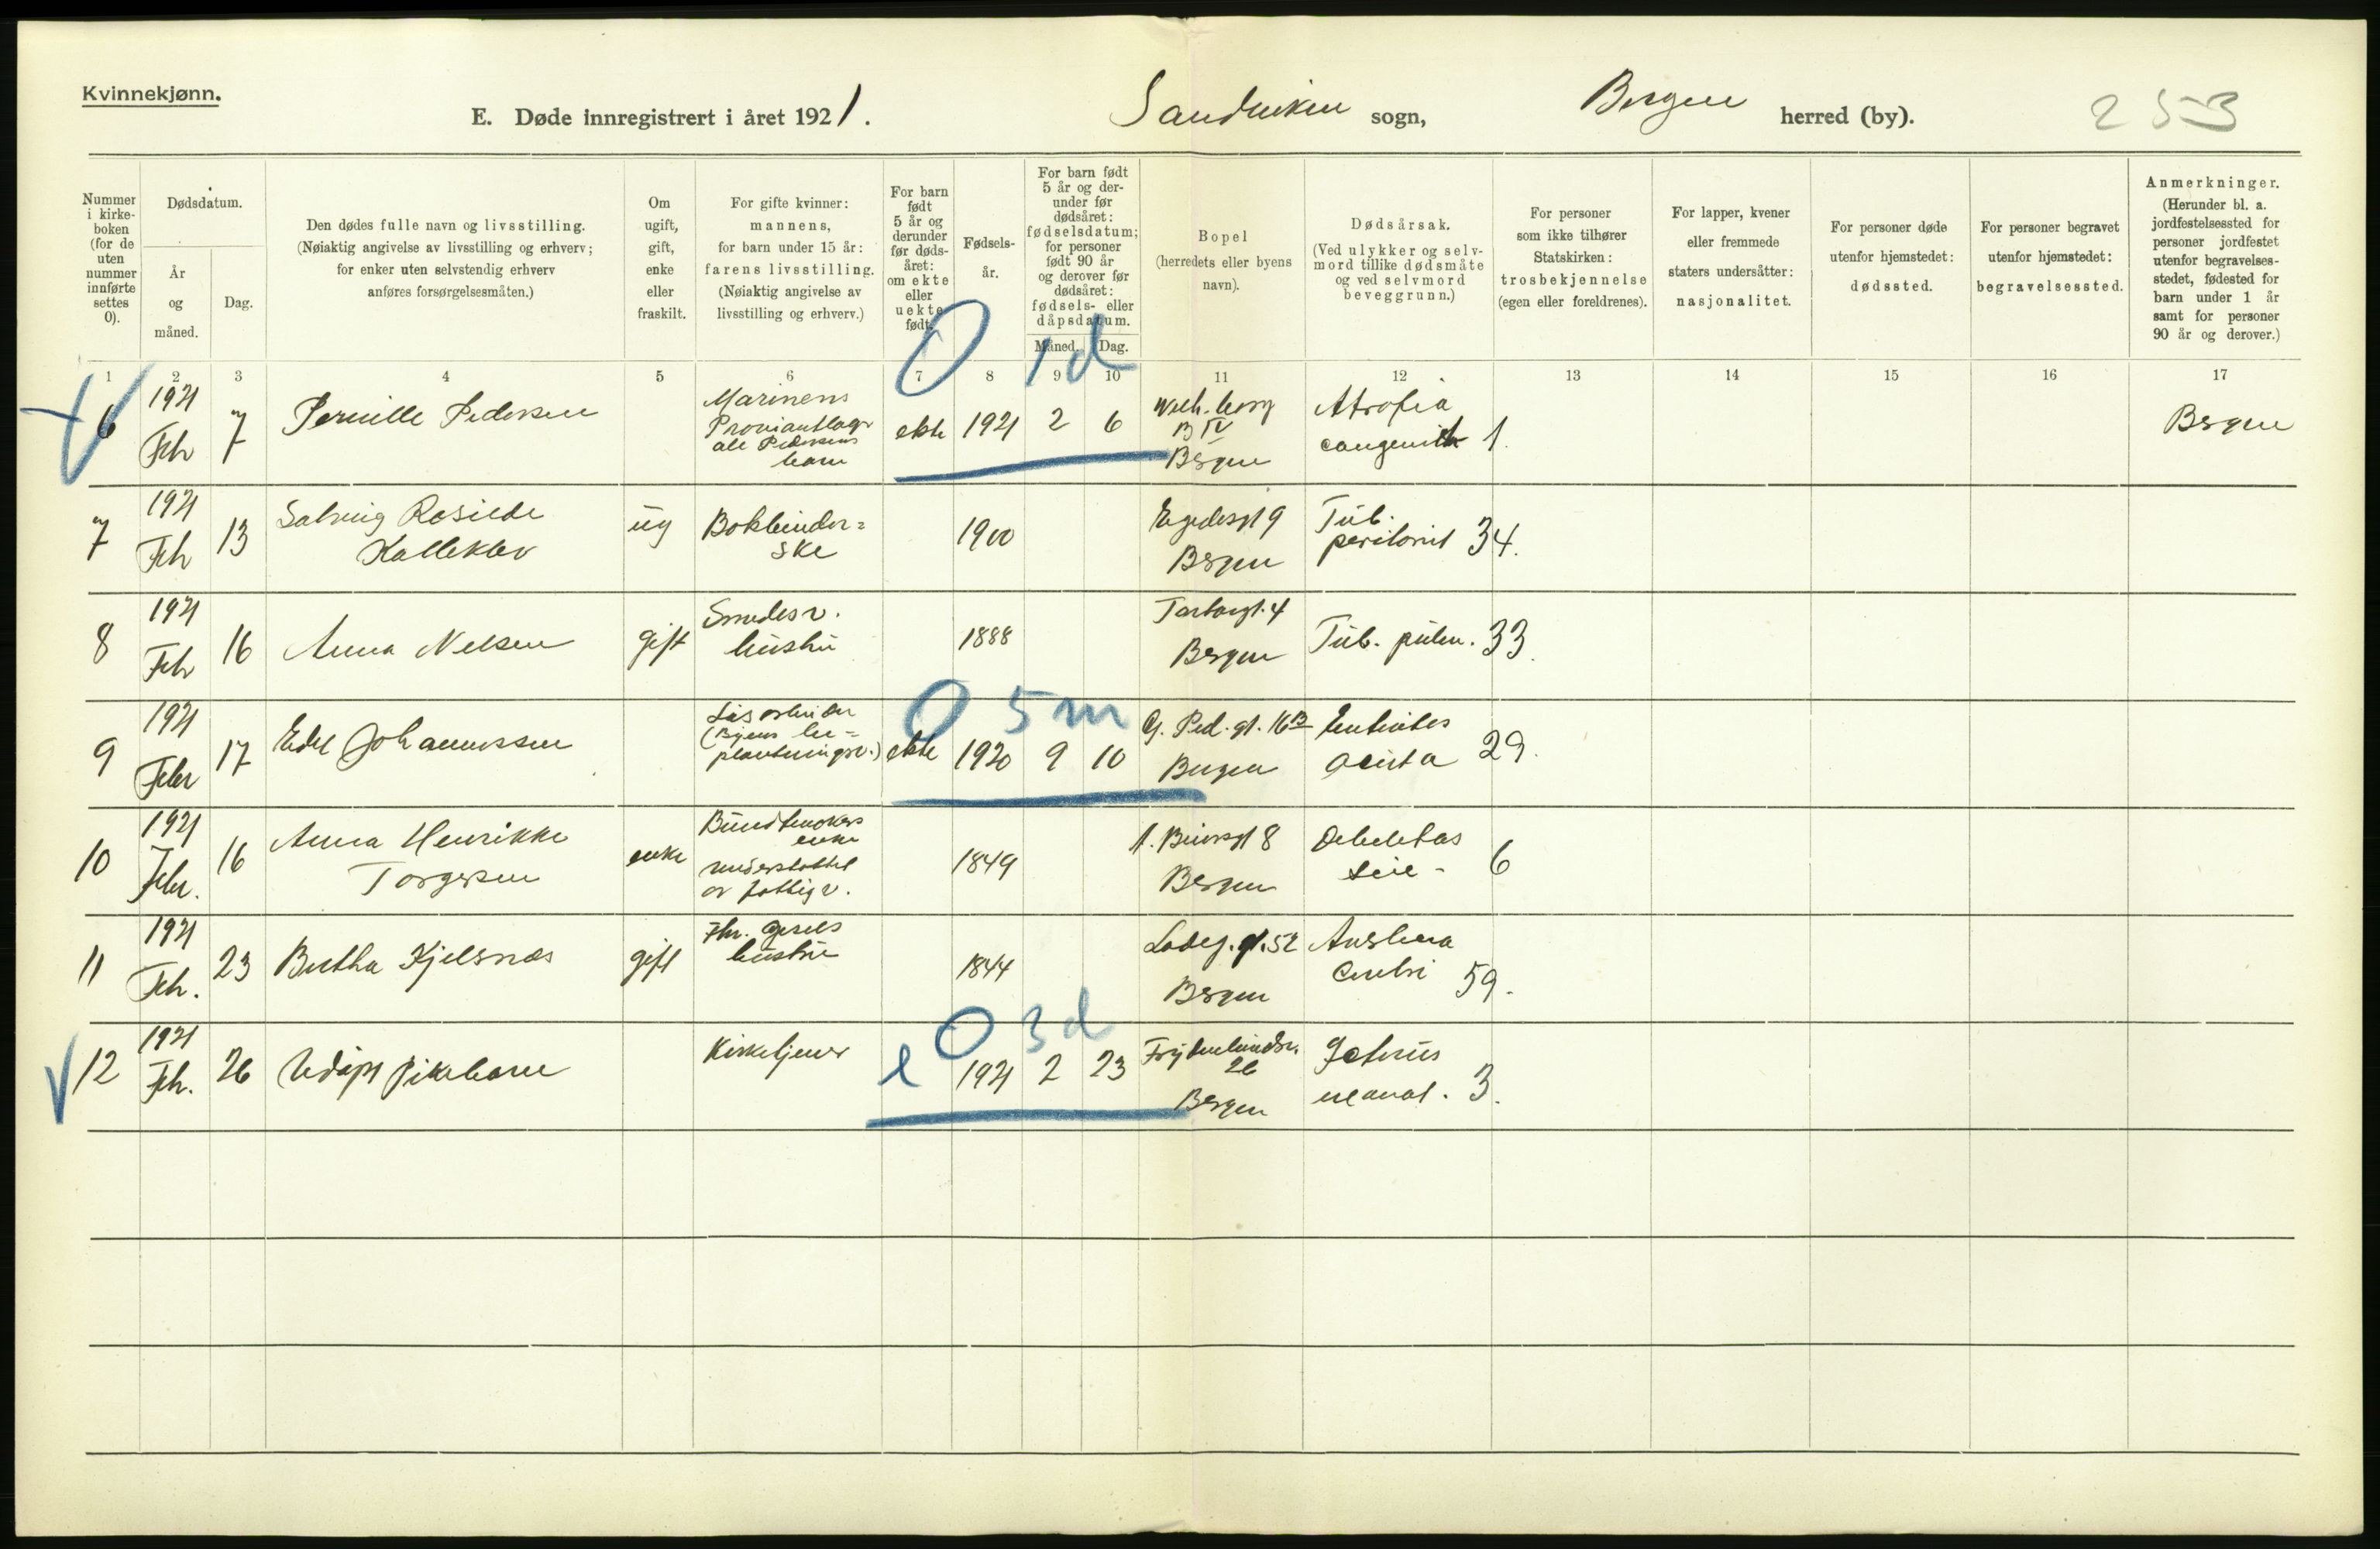 Kvinnekjønn.
E. Døde innregistrert i året 1921.
Sandviken sogn,
Bergen herred (by).
253
Nummer i kirke-boken (for de uten nummer innførte settes 0).
Dødsdatum.
År og måned.
Dag.
Den dødes fulle navn og livsstilling.
(Nøiaktig angivelse av livsstilling og erhverv;
for enker uten selvstendig erhverv
anføres forsørgelsesmåten.)
Om ugift, gift, enke eller fraskilt.
For gifte kvinner:
mannens,
for barn under 15 år:
farens livsstilling.
(Nøiaktig angivelse av
livsstilling og erhverv.)
For barn født 5 år og derunder før døds-året: om ekte eller uekte født.
Fødsels-år.
For barn født 5 år og der-under før dødsåret: fødselsdatum; for personer født 90 år og derover før dødsåret: fødsels- eller dåpsdatum.
Måned. Dag.
Bopel
(herredets eller byens
navn).
Dødsårsak.
(Ved ulykker og selv-
mord tillike dødsmåte
og ved selvmord
beveggrunn.)
For personer
som ikke tilhører
Statskirken:
trosbekjennelse
(egen eller foreldrenes).
For lapper, kvener
eller fremmede
staters undersåtter:
nasjonalitet.
For personer døde
utenfor hjemstedet:
dødssted.
For personer begravet
utenfor hjemstedet:
begravelsessted.
Anmerkninger.
(Herunder bl. a.
jordfestelsessted for
personer jordfestet
utenfor begravelses-
stedet, fødested for
barn under 1 år
samt for personer
90 år og derover.)
1 2 3 4 5 6 7 8 9 10 11 12 13 14 15 16 17
0 1 d
6 1921 Feb 7 Pernille Pedersen Marinens Proviantlagr Pedersens barn ekte 1921 2 6 B IV Bergen Atrofia congenita 1. Bergen
7 1921 Feb 13 Solveig Rosilde Kalleklev ug Bokbinder=ske 1900 Egedesgt 9 Bergen Tub. peritonit 34.
8 1921 Feb 16 Anna Nelsen gift Smedesv. hustru 1888 Tartargt. 4 Bergen Tub. pulm. 33.
0 5 m
9 1921 Febr 17 Edel Johannessen Løsarbeider (Byens be=plantningsv.) ekte 1920 9 10 G. Ped. gt. 16B Bergen Enteritis acuta 29.
10 1921 Febr. 16 Anna Henrikke Torgersen enke Buntmakers enke understøttet av fattigv. 1849 Bergen 6
11 1921 Feb. 23 Bertha Kjelsnæs gift hustru 1844 Ladeg. gt. 52 Bergen cerebri 59.
0 3 d
12 1921 Feb. 26 Udøpt pikebarn Kirketjener e 1921 2 23 Frydenlundsv. 26 Bergen Icterus neonat. 3.